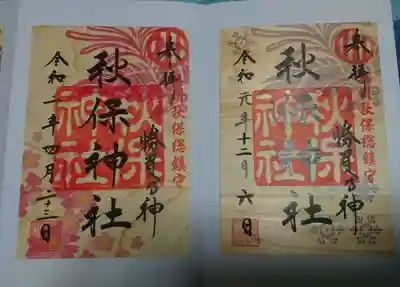 奉拝
秋保総鎮守
勝負の神
秋保神社
秋保神社
令和元年十二月六日
奉拝
秋保総鎮守
勝負の神
秋保神社
秋保神社
令和二年四月二十三日